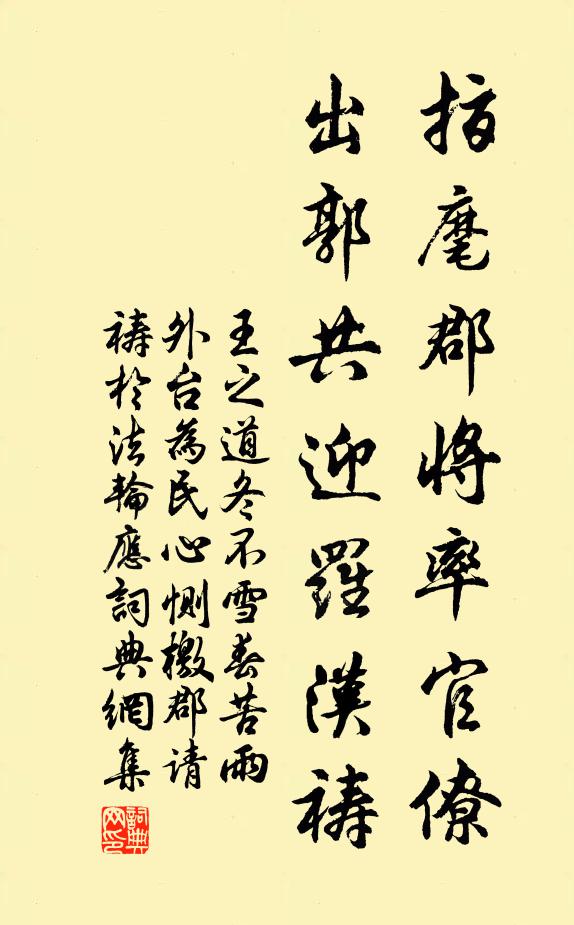 指麾郡將率官僚
出郭共迎羅漢禱
王之道冬不雪春苦雨
外台為民心惻檄郡請
禱於法輪應詞典網集
詞典網印